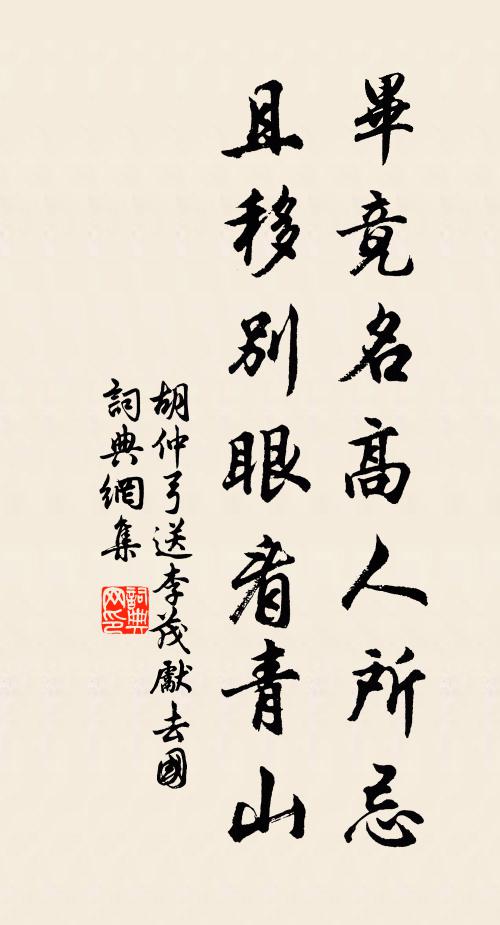 畢竟名高人所忌
且移別眼看青山
胡仲弓送李茂獻去國
詞典網集
詞典网印